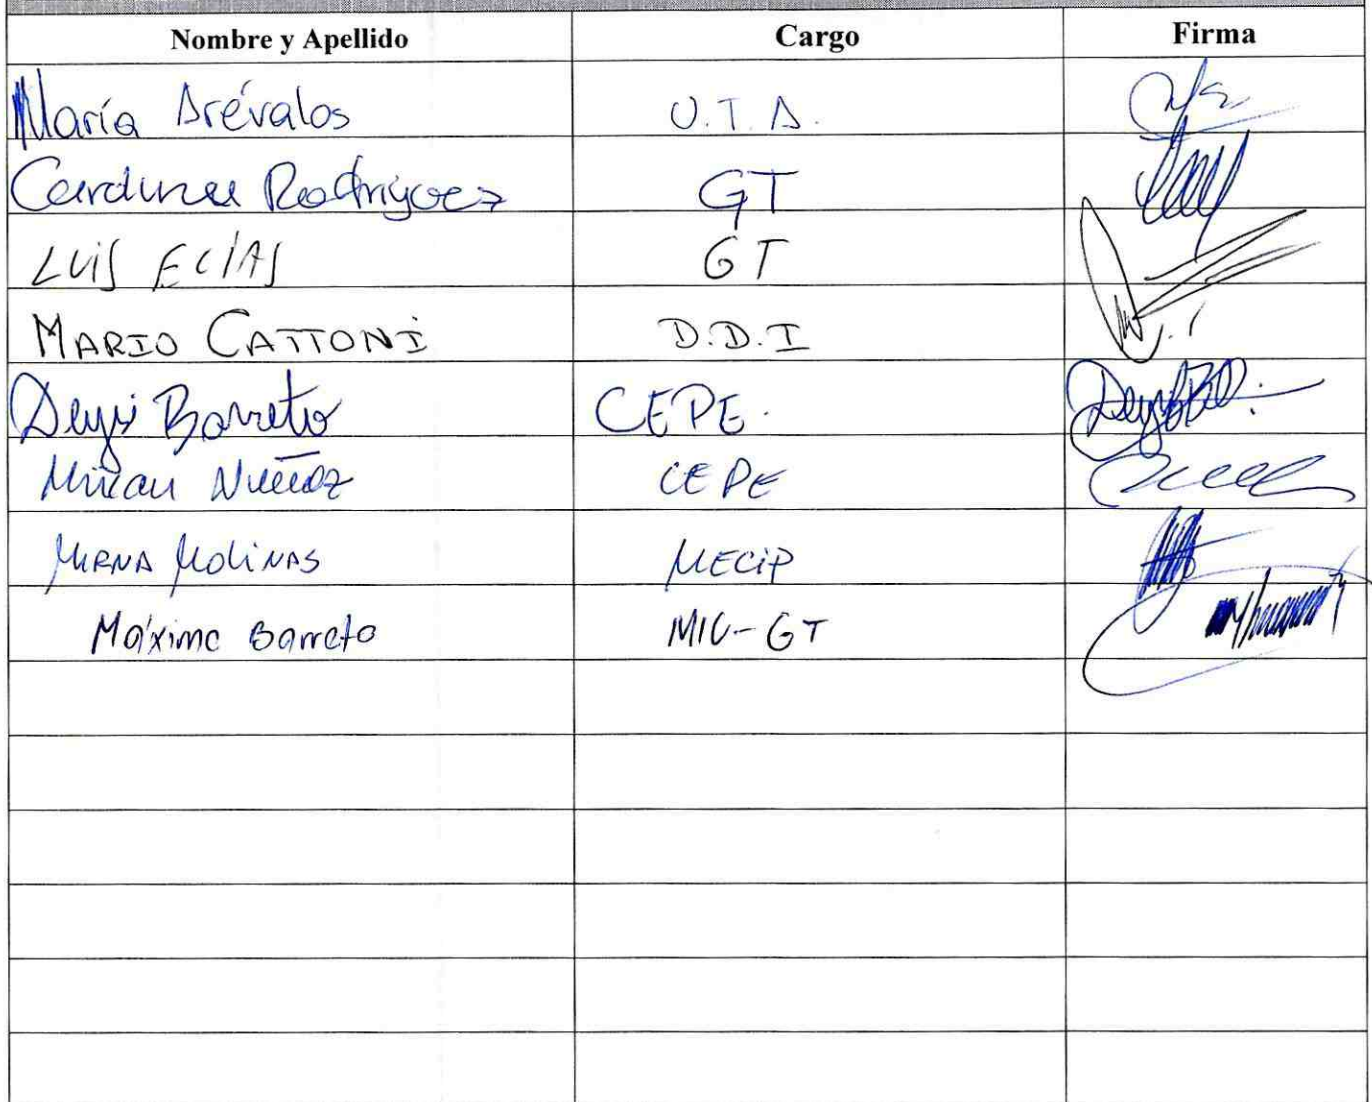 Nombre y Apellido Cargo Firma
María Arévalos U.T.A.
Carolina Rodríguez GT
LUIS ELÍAS GT
MARIO CATTONI D.D.I
Deysi Barreto CEPE. Deysi B
Mirian Nuñez CEPE
MIRNA MOLINAS MECIP
Máximo Barreto MIC-GT